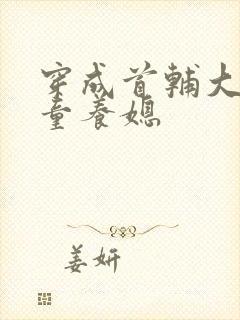 穿成首辅大
童养媳
姜妍